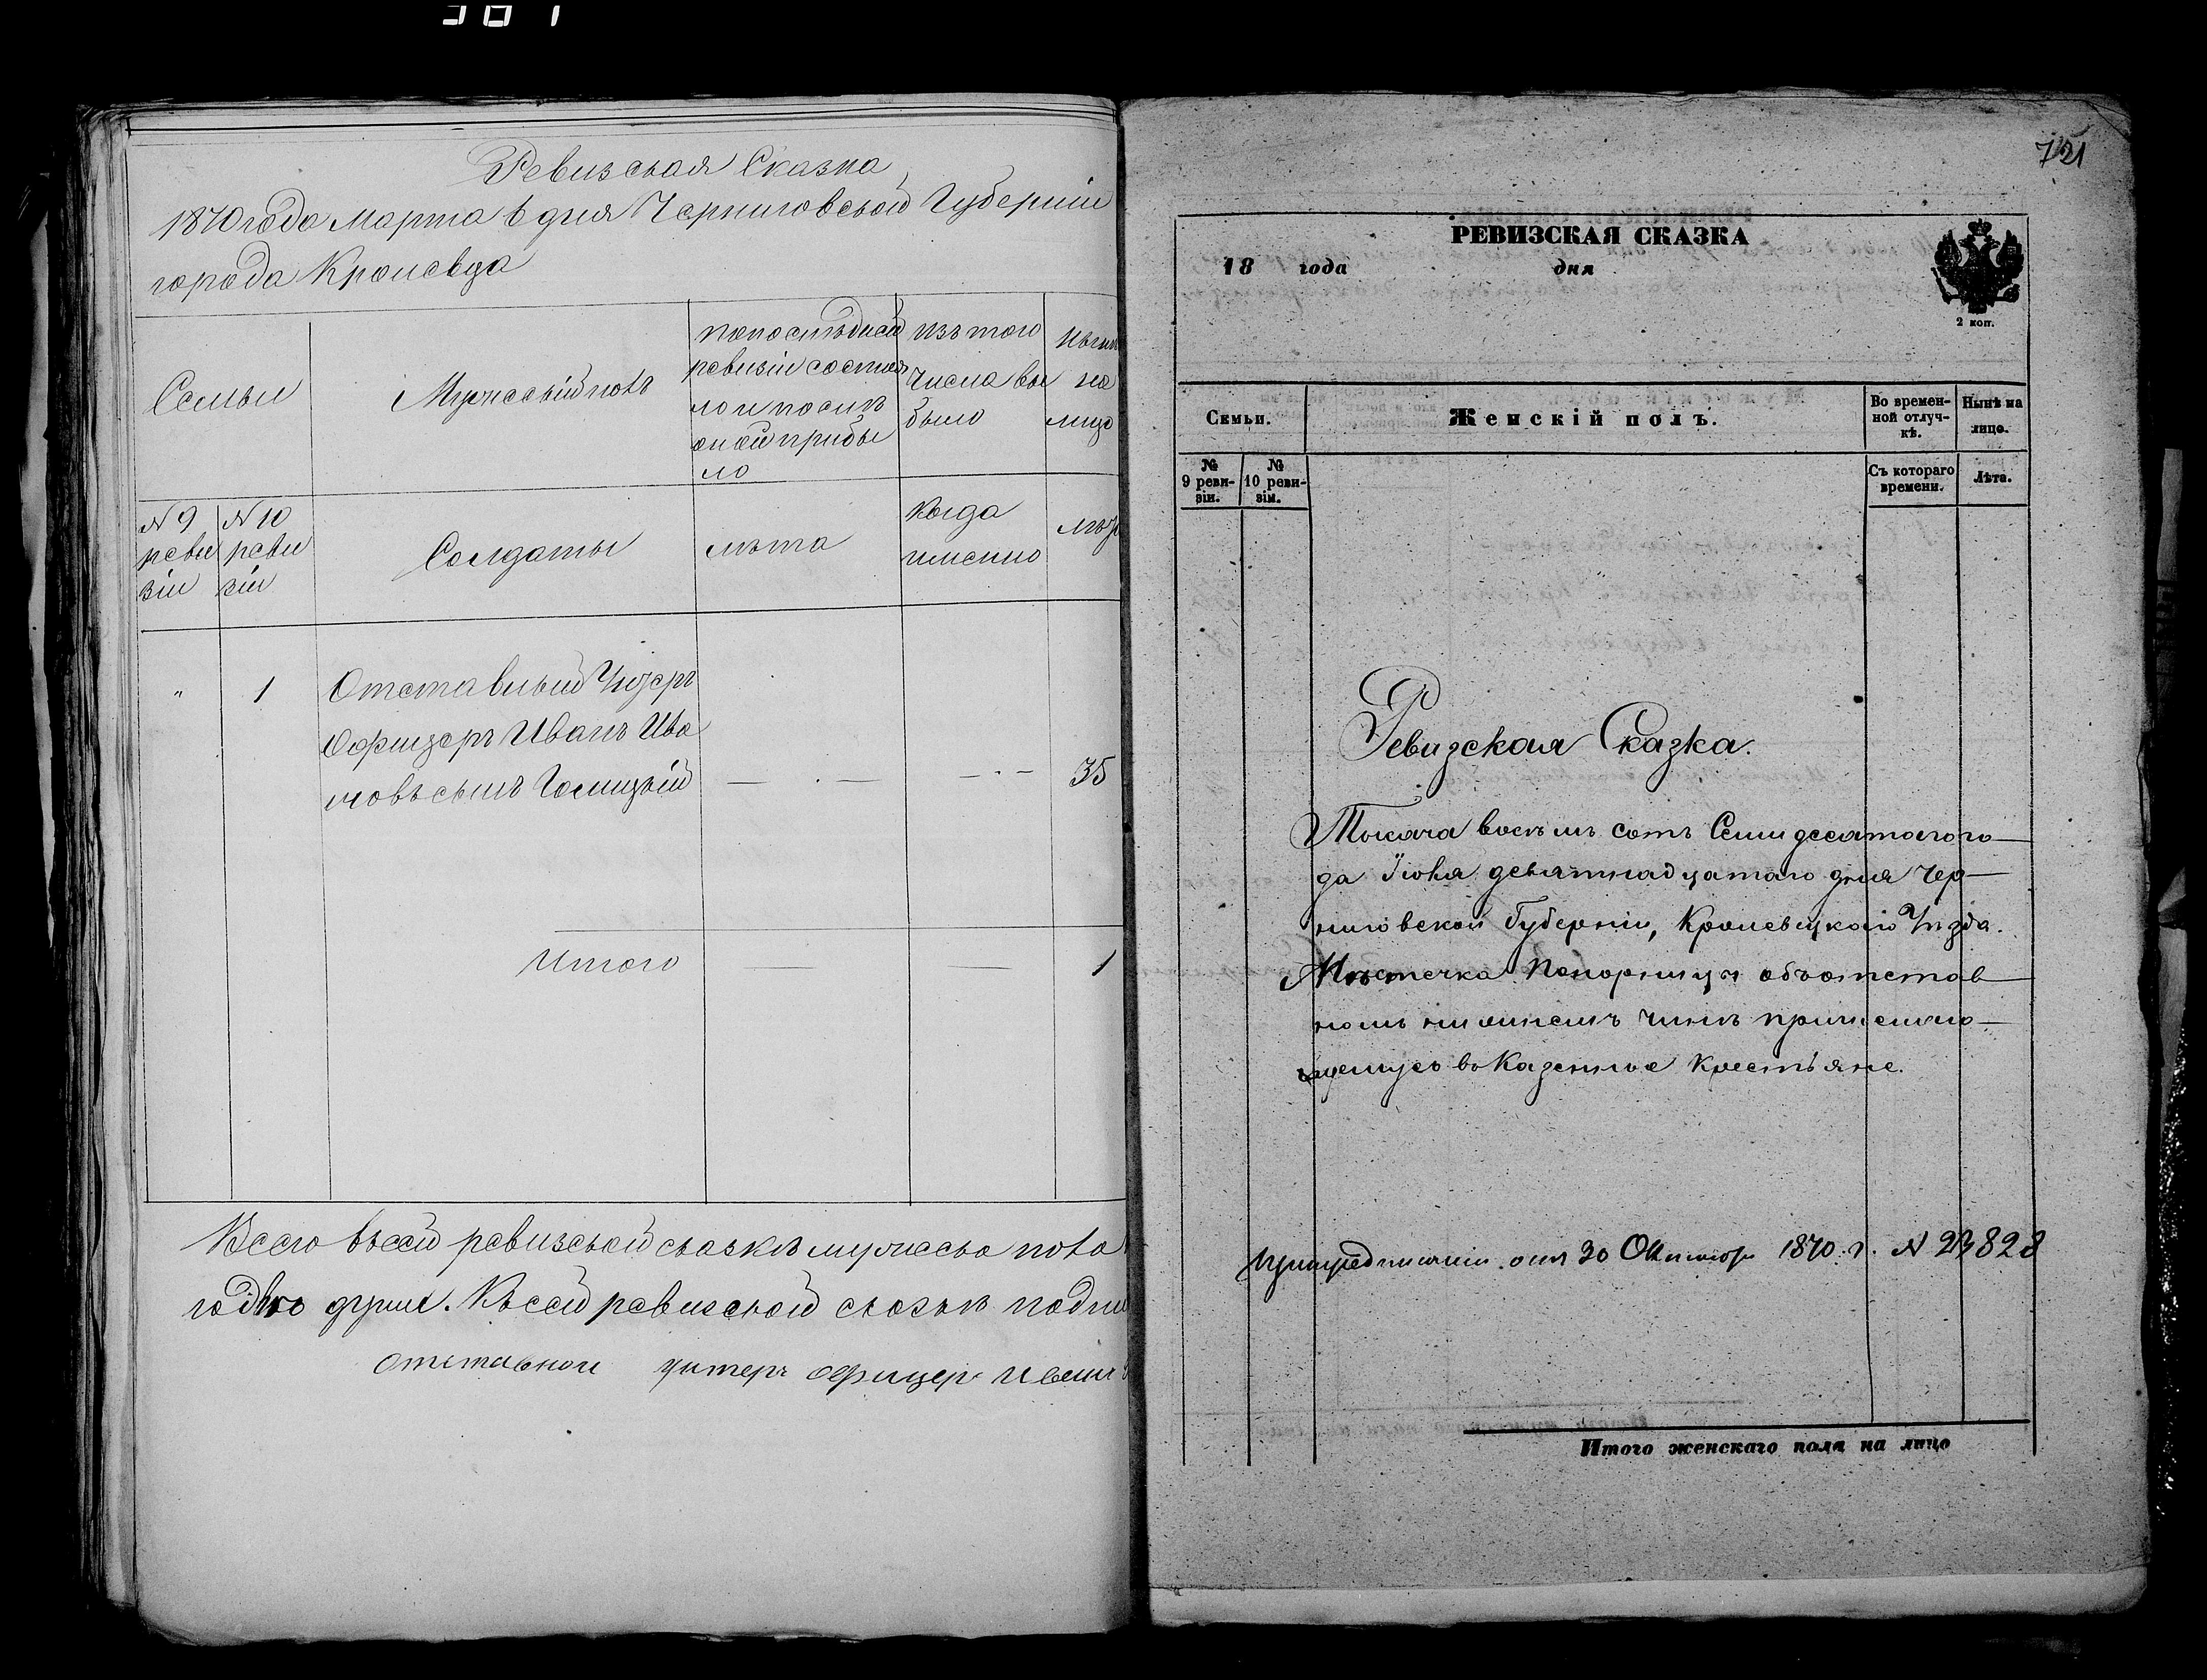 Ревизская Сказка
1870 года Марта 6 дня Черниговской Губернии
города Кролевца
Семьи
Мужескій полъ
По последней
ревизіи состоя
ло и после
оной прибы
ло
Изъ того
числа вы
было
Ныне
на
лицо
N 9
реви
зіи
N 10
реви
зіи
Солдаты
лѣта
Когда
именно
лѣт
" 1 Отставный Унтеръ
Офицеръ Иванъ Ива
новъ сынъ Голицкій — . — — . — 35
Итого — — 1
Всего въ сей ревизской сказкѣ мужеска пола
одна душа. Къ сей ревизской сказкѣ подпи
отставной унтеръ офицеръ Иванъ
721
РЕВИЗСКАЯ СКАЗКА
18 года дня
2 коп.
Семьи.
Женскій полъ.
Во времен-
ной отлуч-
кѣ.
Нынѣ на
лицо.
№
9 реви-
зіи.
№
10 реви-
зіи.
Съ котораго
времени.
Лѣта.
Ревизская Сказка.
Тысяча восемь сотъ Семидесятаго го-
да Іюня девятнадцатаго дня Чер-
ниговской Губерніи, Кролевецкаго Уѣзда.
Мѣстечка Понорницы объ отстав
номъ нижнемъ чинѣ причисляю-
щемуся въ Казенные Крестьяне.
При предписаніи отъ 30 Октября 1870 г. N 23828
Итого женскаго пола на лицо